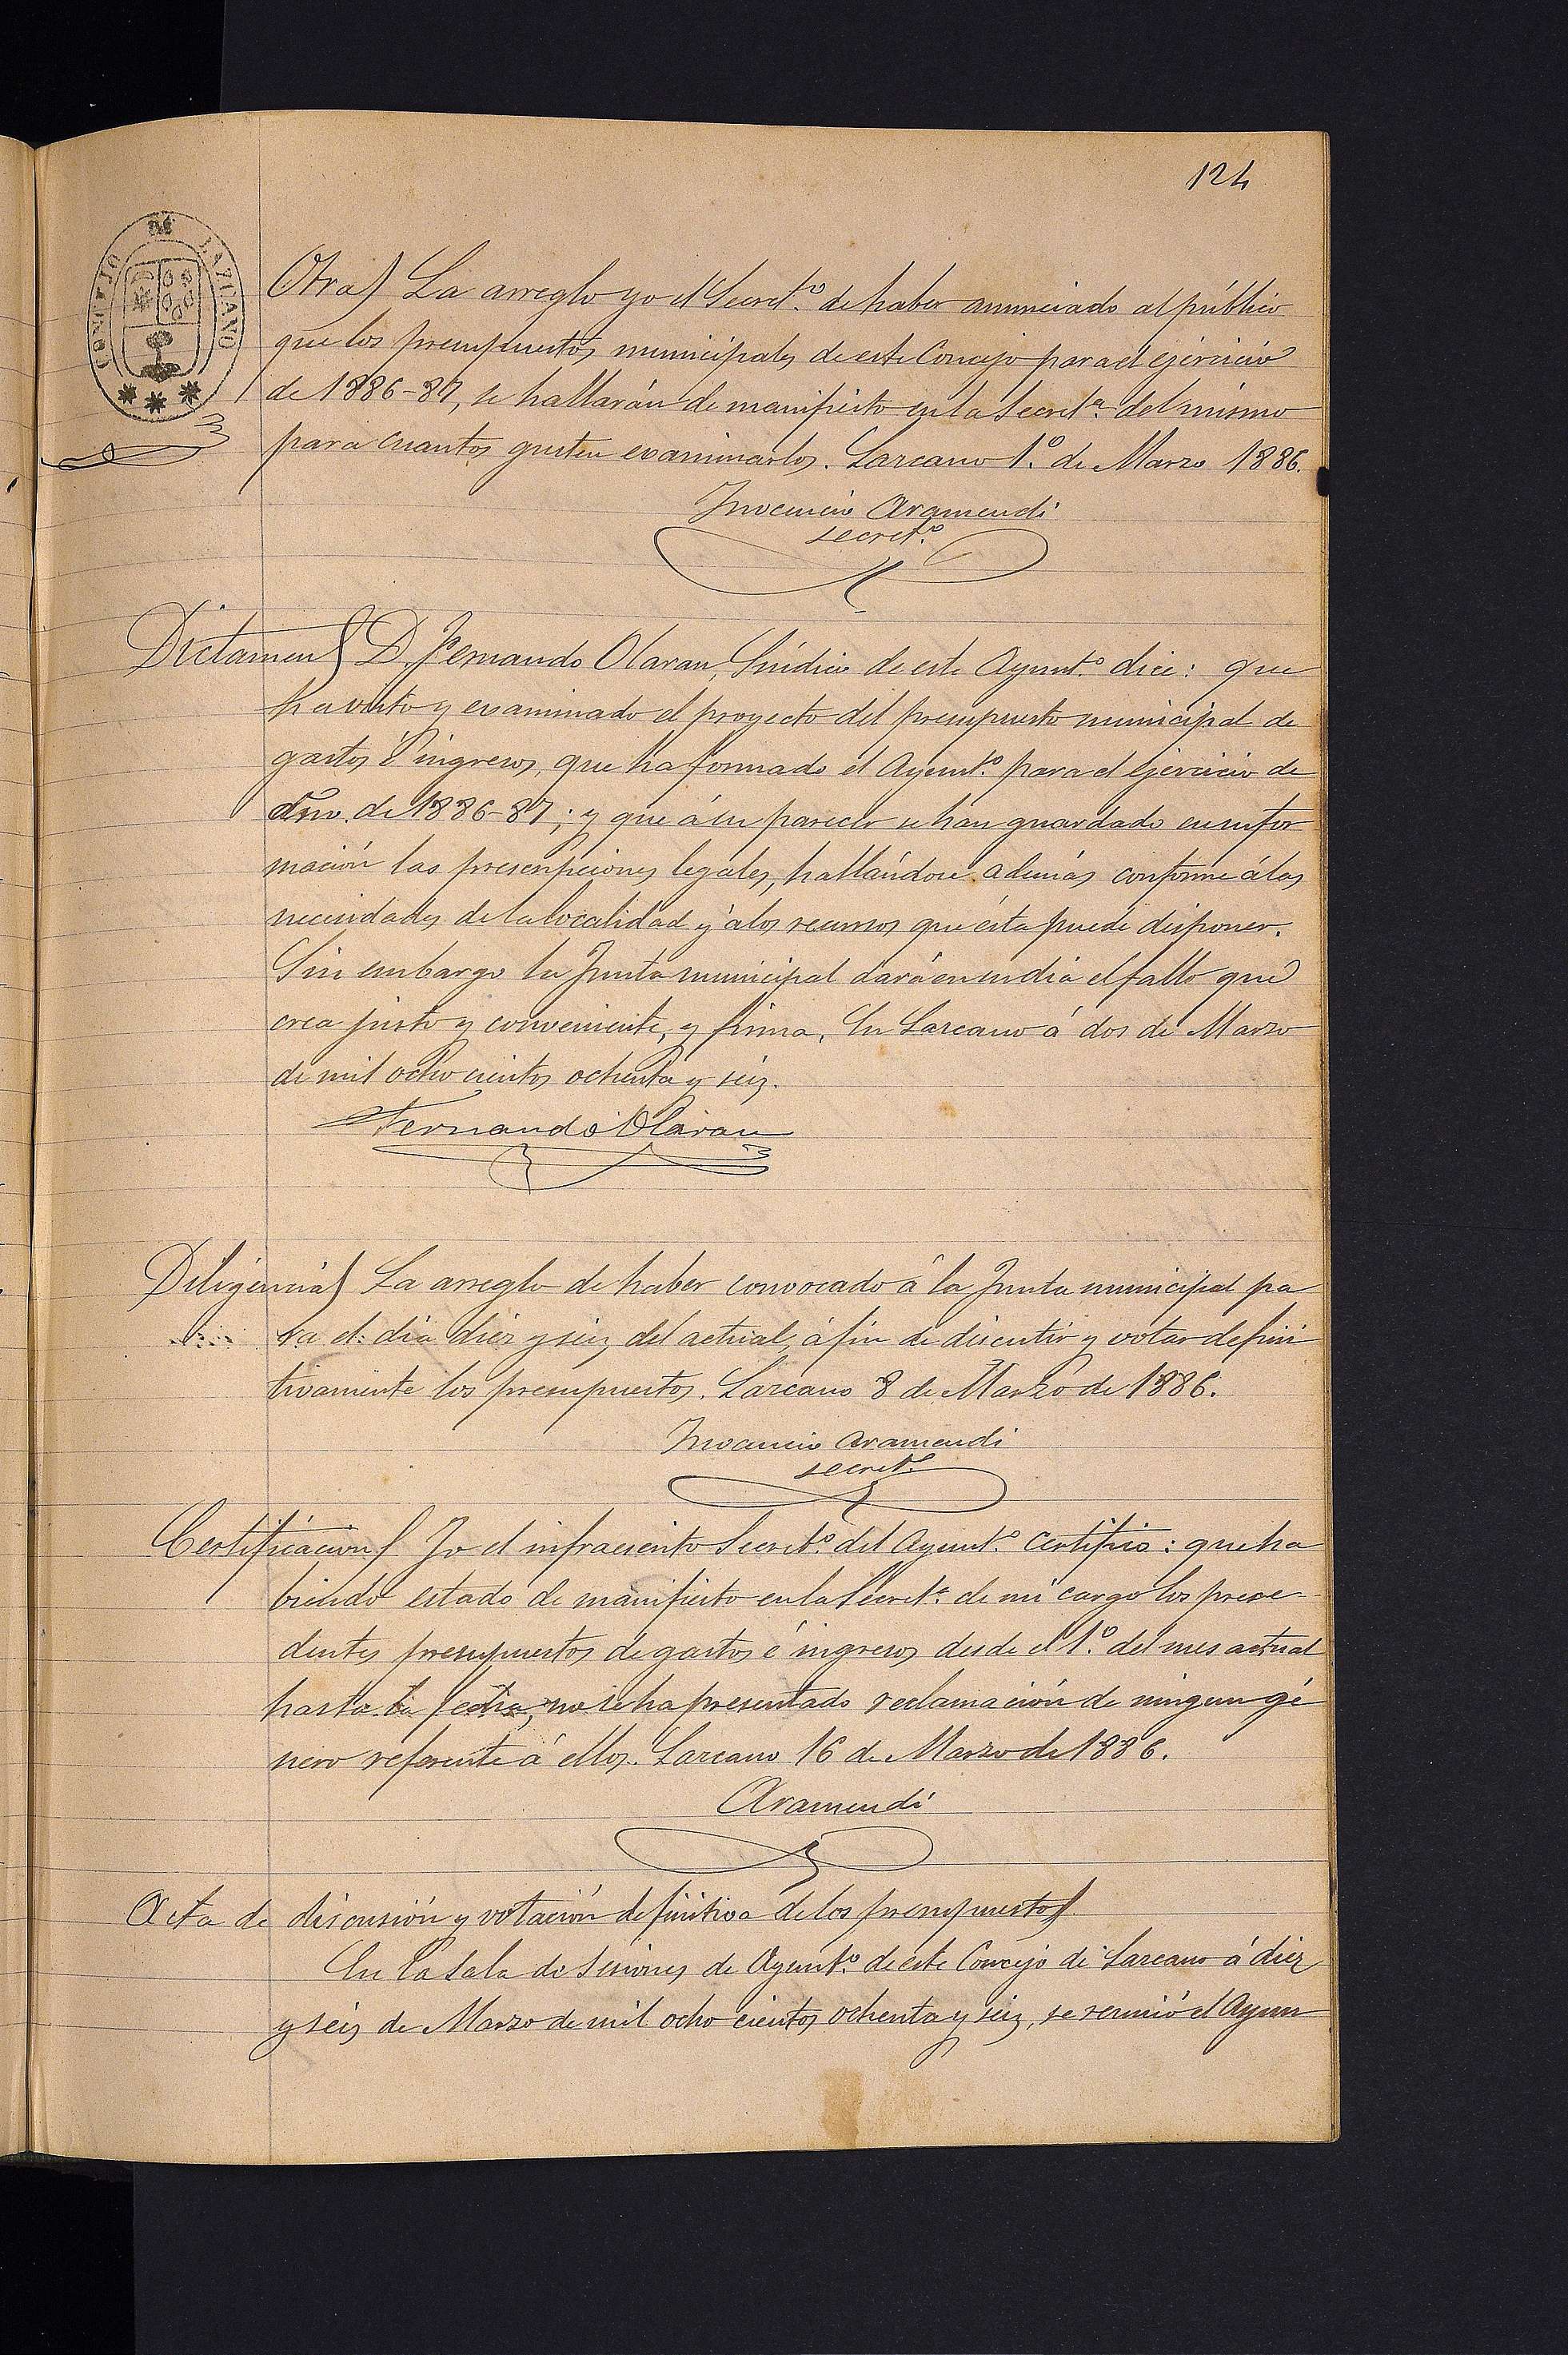 124
CONCEJO DE LAZCANO
Otra) La arreglo yo el Secret.º de haber anunciado al público
que los presupuestos municipales de este Concejo para el ejercicio
de 1886-87, se hallarán de manifiesto en la Secret.ª del mismo
para cuantos gusten examinarlos. Lazcano 1.º de Marzo 1886.
Inocencio Aramendi
secret.º
Dictamen) D. Fernando Olaran, Síndico de este Ayunt.º dice: que
ha visto y examinado el proyecto del presupuesto municipal de
gastos é ingresos, que ha formado el Ayunt.º para el ejercicio de
de 1886-87; y que á su parecer se han guardado en su for
mación las prescripciones legales, hallándose además conforme á las
necesidades de la localidad y á los recursos que ésta puede disponer.
Sin embargo la Junta municipal dará en su dia el fallo que
crea justo y conveniente, y firma. En Lazcano á dos de Marzo
de mil ochocientos ochenta y seis.
Fernando Olaran
Diligencia) La arreglo de haber convocado á la Junta municipal pa
ra el dia diez y seis del actual, á fin de discutir y votar defini
tivamente los presupuestos. Lazcano 8 de Marzo de 1886.
Inocencio Aramendi
secret.º
Certificación) Yo el infrascrito Secret.º del Ayunt.º certifico: que ha
biendo estado de manifiesto en la Secret.ª de mi cargo los prece-
dentes presupuestos de gastos é ingresos desde el 1.º del mes actual
hasta la fecha, no se ha presentado reclamación de ningun gé
nero referente á ellos. Lazcano 16 de Marzo de 1886.
Aramendi
Acta de discusión y votación definitiva de los presupuestos)
En la Sala de Sesiones de Ayunt.º de este Concejo de Lazcano á diez
y seis de Marzo de mil ocho cientos ochenta y seis, se reunió el Ayun